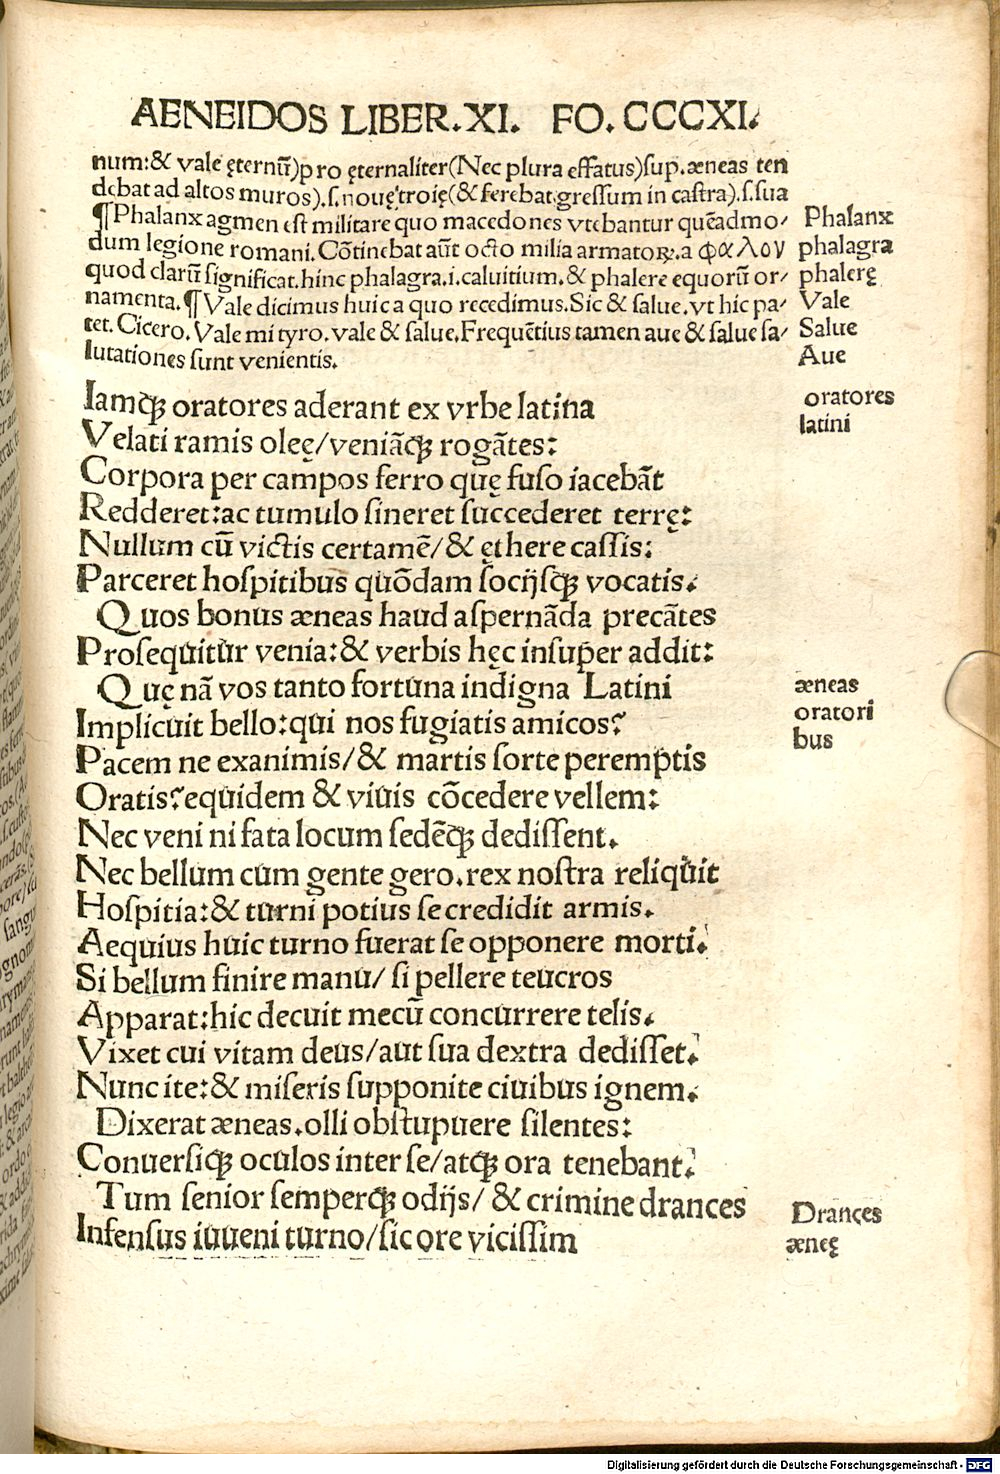 AENEIDOS LIBER.XI. FO. CCCXI.
num:& vale ęternū)pro ęternaliter(Nec plura effatus)sup.æneas ten
debat ad altos muros).s.nouę troię(& ferebat gressum in castra).s.sua
¶Phalanx agmen est militare quo macedones vtebantur quēadmo-
dum legione romani.Cōtinebat aūt octo milia armatoꝝ.a φαλου
quod clarū significat.hinc phalagra.i.caluitium.& phalere equorū or-
namenta.¶Vale dicimus huic a quo recedimus.Sic & salue.vt hic pa-
tet.Cicero.Vale mi tyro.vale & salue.Frequētius tamen aue & salue sa-
lutationes sunt venientis.
Phalanx
phalagra
phalerę
Vale
Salue
Aue
Iamqꝫ oratores aderant ex vrbe latina
Velati ramis oleę/veniāqꝫ rogātes:
Corpora per campos ferro quę fuso iacebāt
Redderet:ac tumulo sineret succederet terrę:
Nullum cū victis certamē/& ęthere cassis:
Parceret hospitibus quōdam socijsqꝫ vocatis.
Quos bonus æneas haud aspernāda precātes
Prosequitur venia:& verbis hęc insuper addit:
Quę nā vos tanto fortuna indigna Latini
Implicuit bello:qui nos fugiatis amicos?
Pacem ne exanimis/& martis sorte peremptis
Oratis?equidem & viuis cōcedere vellem:
Nec veni ni fata locum sedēqꝫ dedissent.
Nec bellum cum gente gero.rex nostra reliquit
Hospitia:& turni potius se credidit armis.
Aequius huic turno fuerat se opponere morti.
Si bellum finire manu/ si pellere teucros
Apparat:hic decuit mecū concurrere telis.
Vixet cui vitam deus/aut sua dextra dedisset.
Nunc ite:& miseris supponite ciuibus ignem.
Dixerat æneas.olli obstupuere silentes:
Conuersiqꝫ oculos inter se/atqꝫ ora tenebant.
Tum senior semperqꝫ odijs/ & crimine drances
Infensus iuueni turno/sic ore vicissim
oratores
latini
æneas
oratori
bus
Drances
æneę
Digitalisierung gefördert durch die Deutsche Forschungsgemeinschaft - DFG